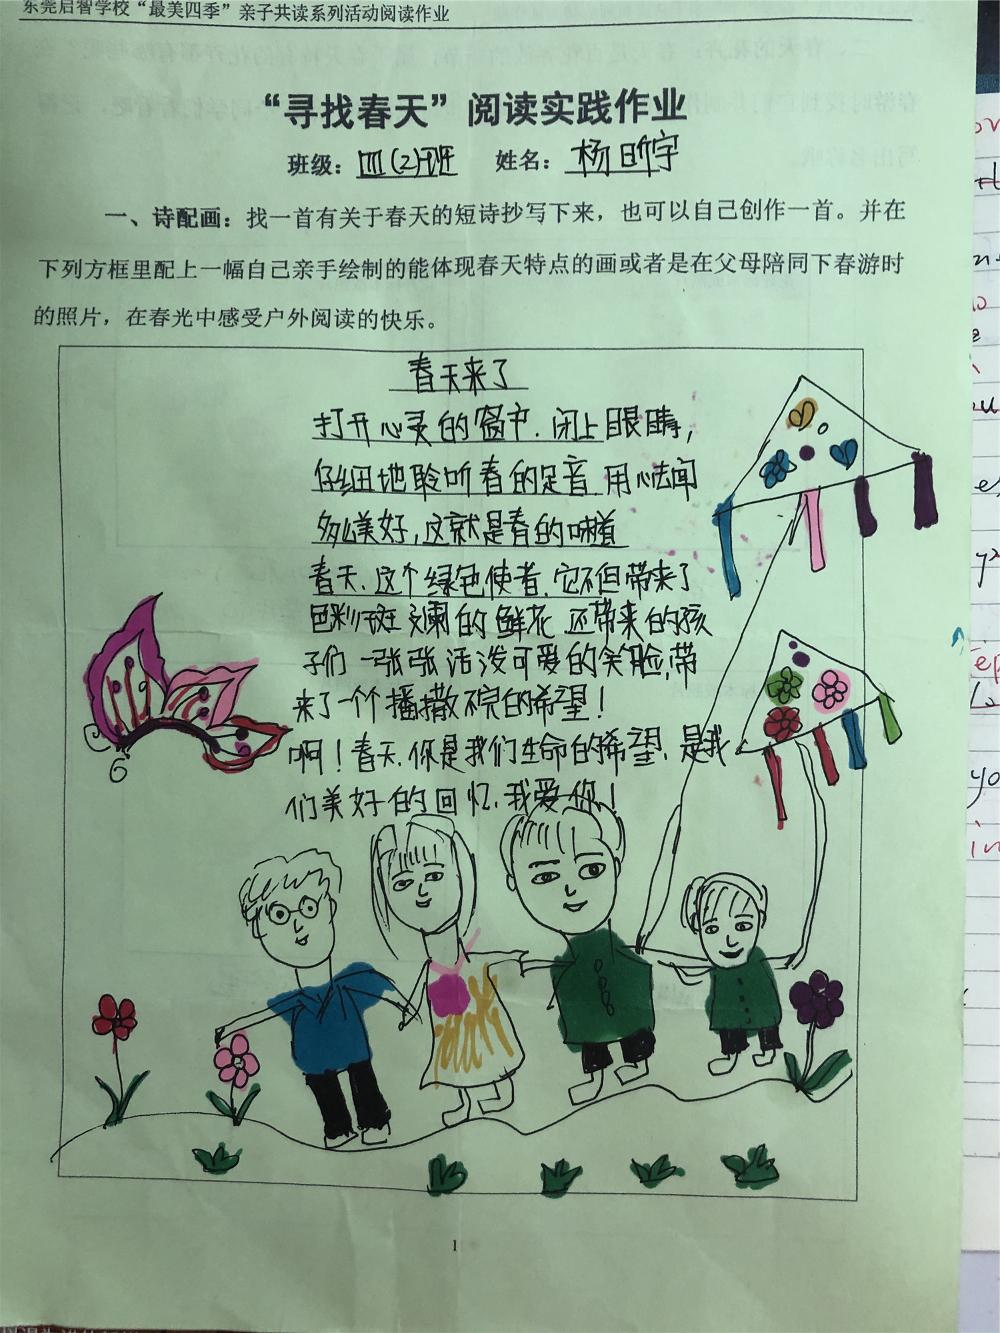 东莞启智学校“最美四季”亲子共读系列活动阅读作业
“寻找春天”阅读实践作业
班级：四(2)班 姓名：杨昕宇
一、诗配画：找一首有关于春天的短诗抄写下来，也可以自己创作一首。并在
下列方框里配上一幅自己亲手绘制的能体现春天特点的画或者是在父母陪同下春游时
的照片，在春光中感受户外阅读的快乐。
春天来了
打开心灵的窗户.闭上眼睛，
仔细地聆听春的足音 用心去闻
多么美好，这就是春的味道
春天.这个绿色使者.它不但带来了
色彩斑斓的鲜花 还带来的孩
子们一张张活泼可爱的笑脸，带
来了一个播撒不完的希望！
啊！春天.你是我们生命的希望.是我
们美好的回忆.我爱你！
1